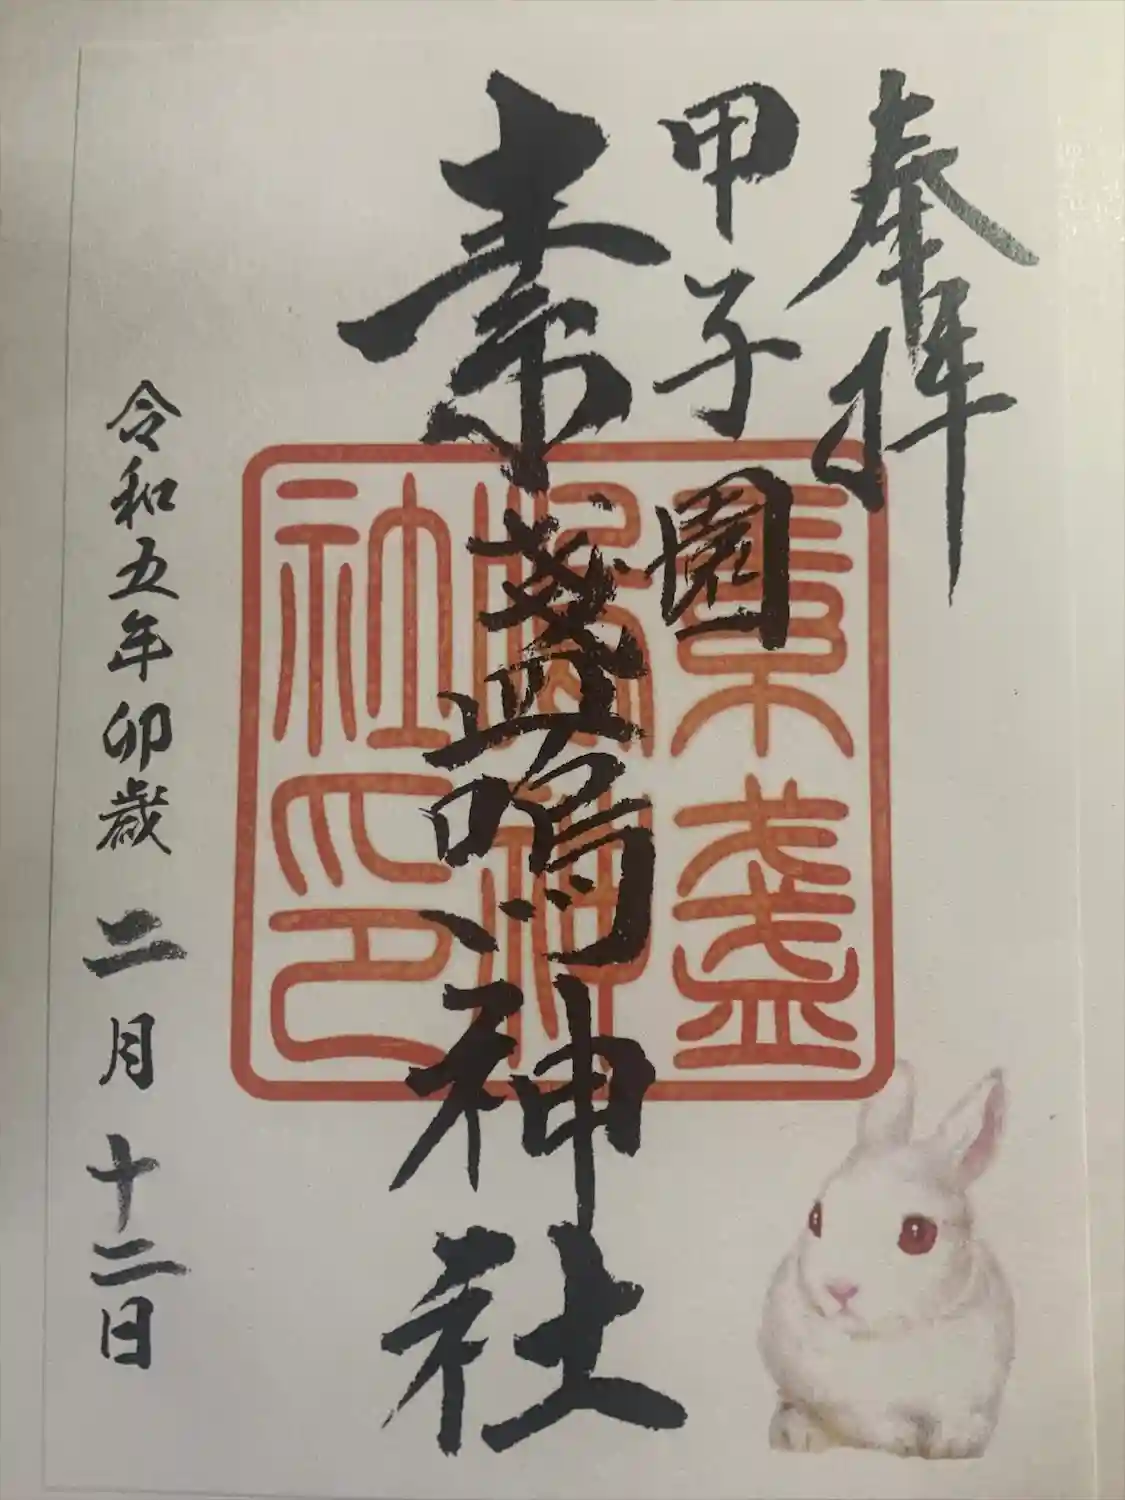 奉拝
甲子園
素盞嗚神社
素盞
嗚神
社印
令和五年卯歳二月十二日